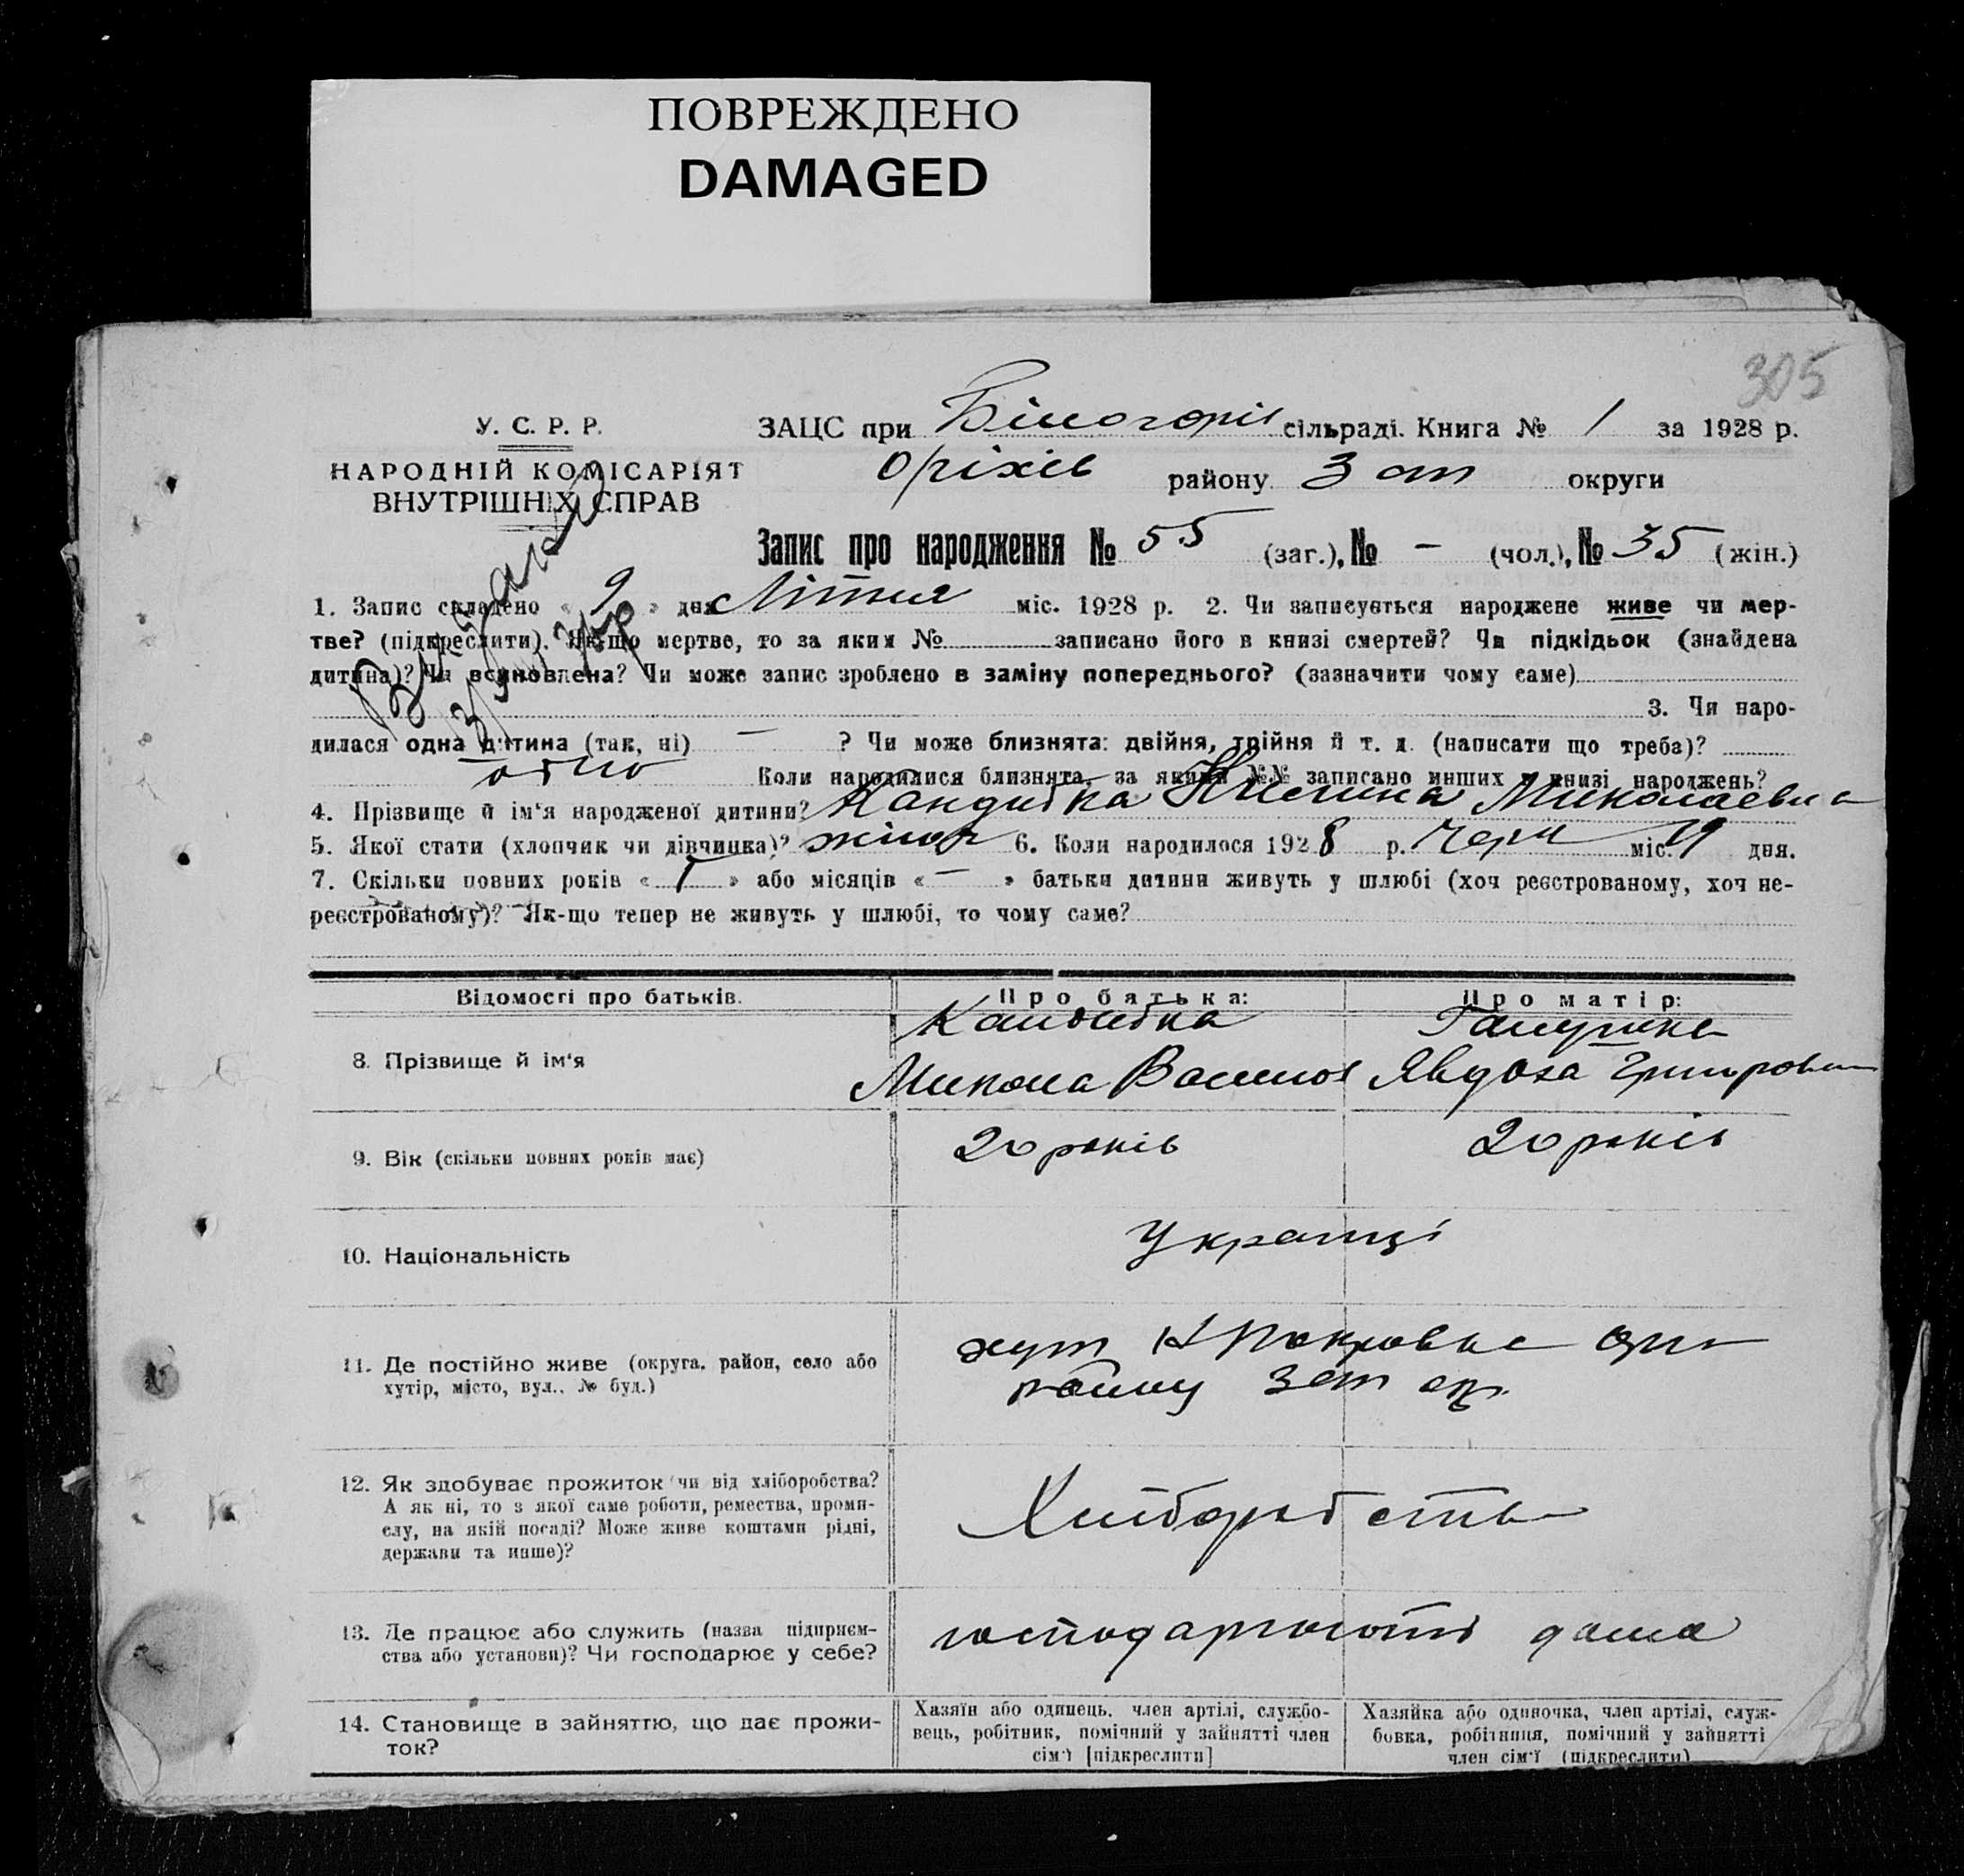 ПОВРЕЖДЕНО
DAMAGED
305
У. С. Р. Р.
НАРОДНІЙ КОМІСАРІЯТ
ВНУТРІШНІХ СПРАВ
ЗАЦС при Білогорів сільраді. Книга № 1 за 1928 р.
Оріхів району Зап округи
Запис про народження № 55 (заг.), № – (чол.), № 35 (жін.)
1. Запис складено « 9 » дня Літня міс. 1928 р. 2. Чи записується народжене живе чи мер-
тве? (підкреслити). Як-що мертве, то за яким № записано його в книзі смертей? Чи підкідьок (знайдена
дитина)? Чи всиновлена? Чи може запис зроблено в заміну попереднього? (зазначити чому саме)
3. Чи наро-
дилася одна дитина (так, ні) – ? Чи може близнята: двійня, трійня й т. д. (написати що треба)?
одно Коли народилися близнята, за якими №№ записано инших у книзі народжень?
4. Прізвище й ім‘я народженої дитини? Кандибка Миколаевна
5. Якої статі (хлопчик чи дівчинка)? жіноч 6. Коли народилося 1928 р. Черн міс. 19 дня.
7. Скільки повних років « 1 » або місяців « – » батьки дитини живуть у шлюбі (хоч реєстрованому, хоч не-
реєстрованому)? Як-що тепер не живуть у шлюбі, то чому саме?
Відомості про батьків.
Про батька:
Про матір:
8. Прізвище й ім‘я
Кандибка
Микола Васильов
Явдоха Григоровна
9. Вік (скільки повних років має)
20 років
20 років
10. Національність
Українці
11. Де постійно живе (округа, район, село або
хутір, місто, вул., № буд.)
хут Н Покровка Оріх
району Зап окр.
12. Як здобуває прожиток чи від хліборобства?
А як ні, то з якої саме роботи, ремества, проми-
слу, на якій посаді? Може живе коштами рідні,
держави та инше)?
Хліборобство
13. Де працює або служить (назва підприєм-
ства або установи)? Чи господарює у себе?
господарюють дома
14. Становище в зайняттю, що дає прожи-
ток?
Хазяїн або одинець, член артілі, службо-
вець, робітник, помічний у зайнятті член
сім‘ї [підкреслити]
Хазяйка або одиночка, член артілі, служ-
бовка, робітниця, помічний у зайнятті
член сім‘ї (підкреслити)